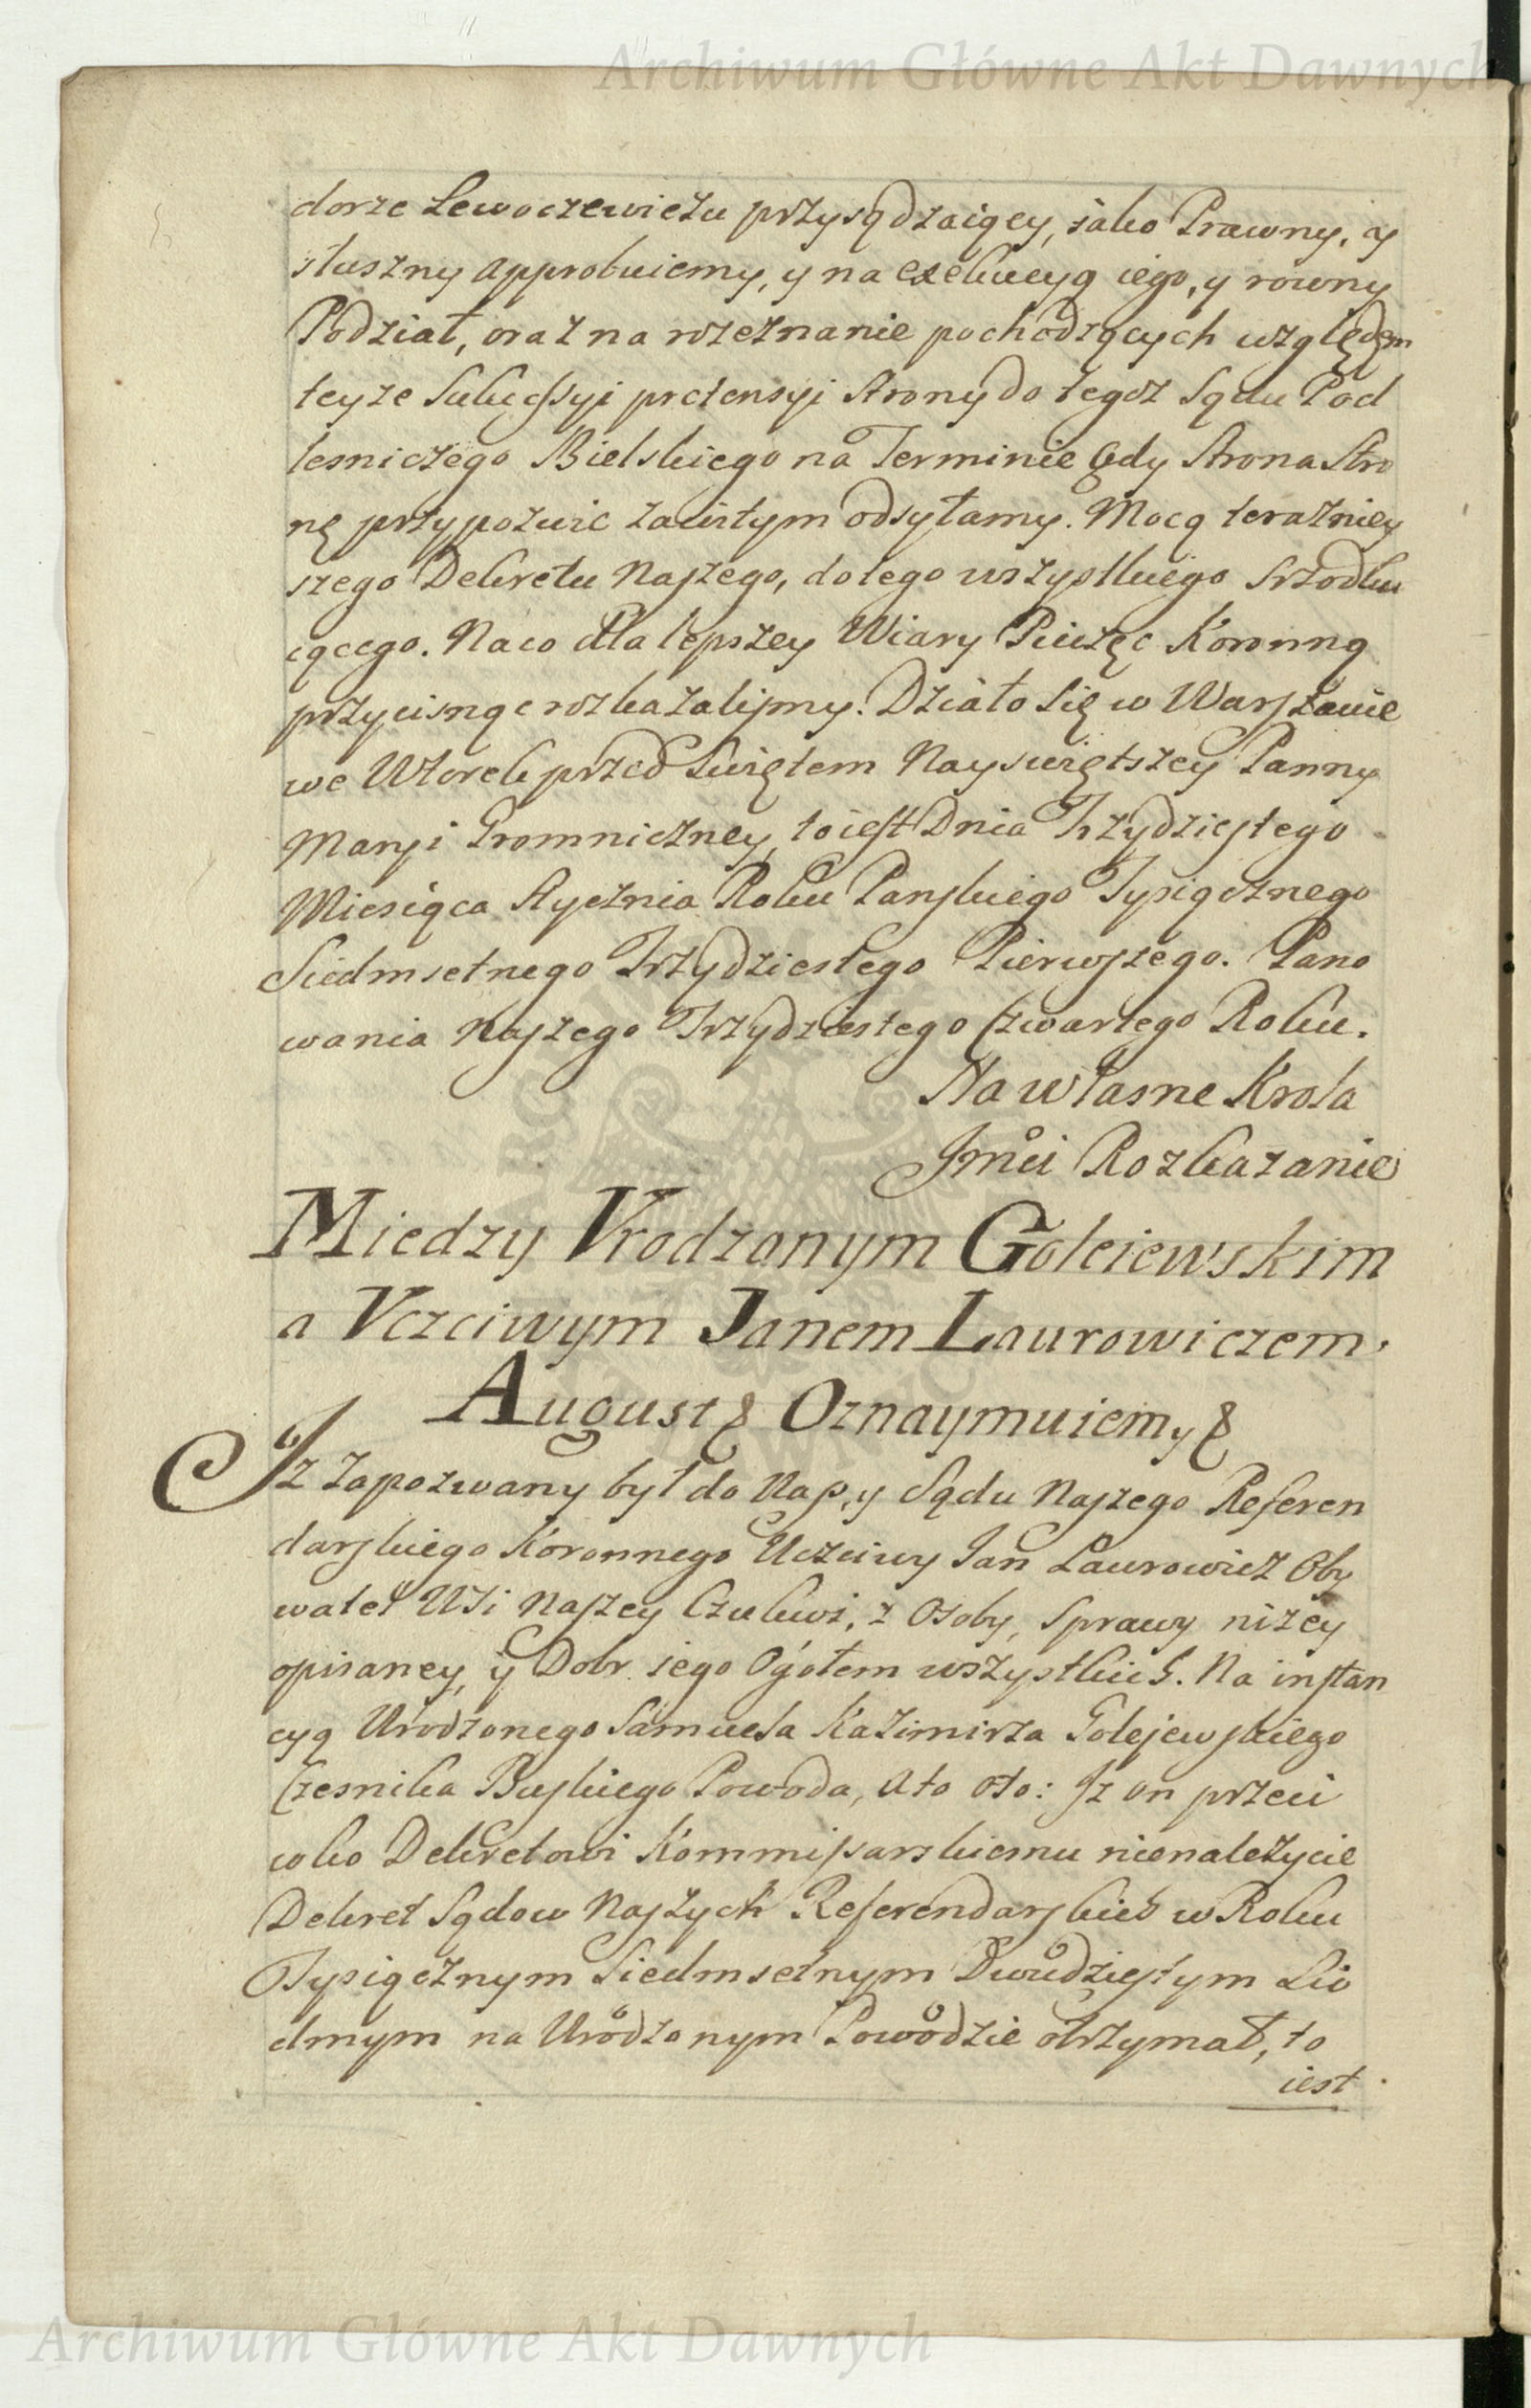 Archiwum Główne Akt Dawnych
dorze Lewoczewiczu przysądzaiącey, iako Prawny, y
słuszny approbuiemy, y na exekucyą iego, y rowny
Podział, oraz na rozeznanie pochodzących względem
teyze Sukcessyi pretensyi Strony do tegoz Sądu Pod
lesniczego Bielskiego na Terminie Gdy Strona Stro
nę przypozwie zawitym odsyłamy. Mocą terazniey
szego Dekretu Naszego, do tego wszystkiego srzodku
iącego. Na co dla lepszey Wiary Pieczęc Koronną
przycisnąc rozkazalismy. Działo się w Warszawie
we Wtorek przed Swiętem Nayswiętszey Panny
Maryi Gromniczney, to iest Dnia Trzydziestego
Miesiąca Stycznia Roku Panskiego Tysiącznego
Siedmsetnego Trzydziestego Pierwszego. Pano
wania Naszego Trzydziestego Czwartego Roku.
Na własne Krola
Jmci Rozkazanie
Miedzy Vrodzonym Goleiewskim
a Vczciwym Janem Laurowiczem.
August & Oznaymuiemy &
Jz Zapozwany był do Nas, y Sądu Naszego Referen
darskiego Koronnego Uczciwy Jan Laurowicz Oby
watel WSi Naszey Czukwi, z Osoby, Sprawy nizey
opisaney, y Dobr iego Ogołem wszystkich. Na instan
cyą Urodzonego Samuela Kazimirza Golejewskiego
Czesnika Buskiego Powoda, A to oto: Jz on przeci
wko Dekretowi Kommissarskiemu nienalezycie
Dekret Sądow Naszych Referendarskich w Roku
Tysiącznym Siedmsetnym Dwudziestym Sio
dmym na Urodzonym Powodzie otrzymał, to
iest
Archiwum Główne Akt Dawnych